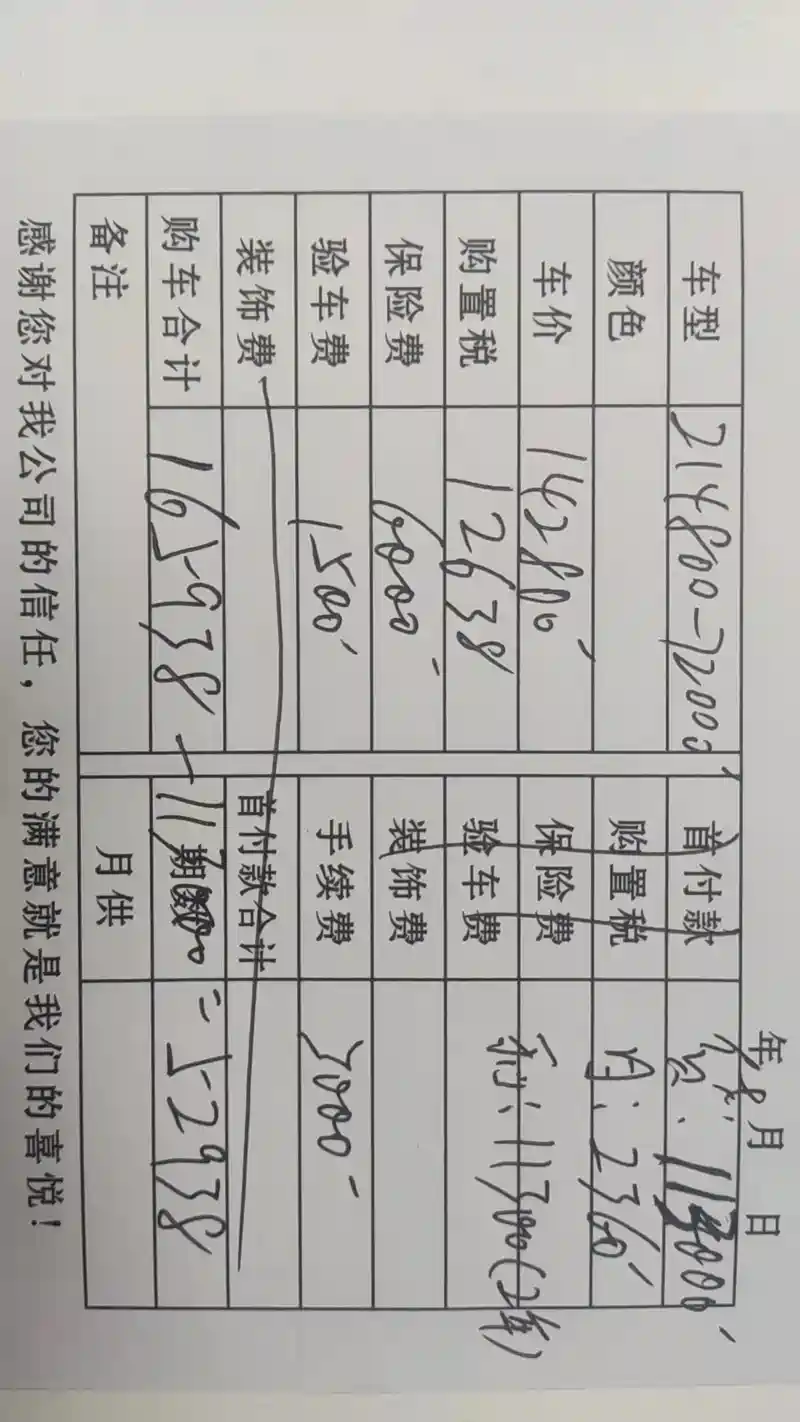 年 8月 日
车型 214800-72000 首付款 贷:113000
颜色 购置税 月:2360
车价 142800 保险费
购置税 12638 验车费 利:11300(2年)
保险费 6000 装饰费
验车费 1500 手续费 3000
装饰费 首付款合计
购车合计 165938-113000=52938 期数
备注 月供
感谢您对我公司的信任，您的满意就是我们的喜悦！